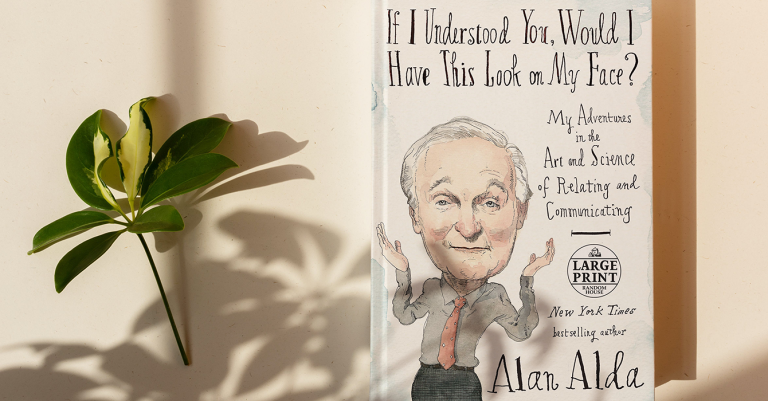 If I Understood You, Would I
Have This Look on My Face?
My Adventures
in the
Art and Science
of Relating and
Communicating
LARGE
PRINT
RANDOM
HOUSE
New York Times
bestselling author
Alan Alda